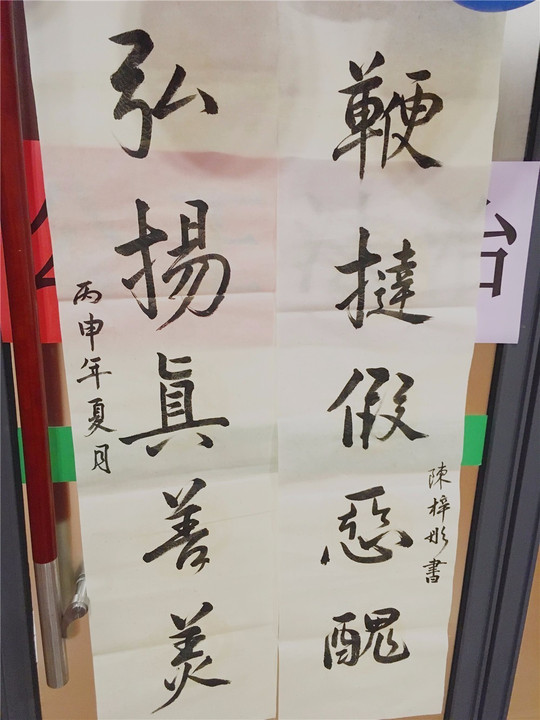 丙申年夏月
弘揚眞善美
鞭撻假惡醜
陳梓彤書